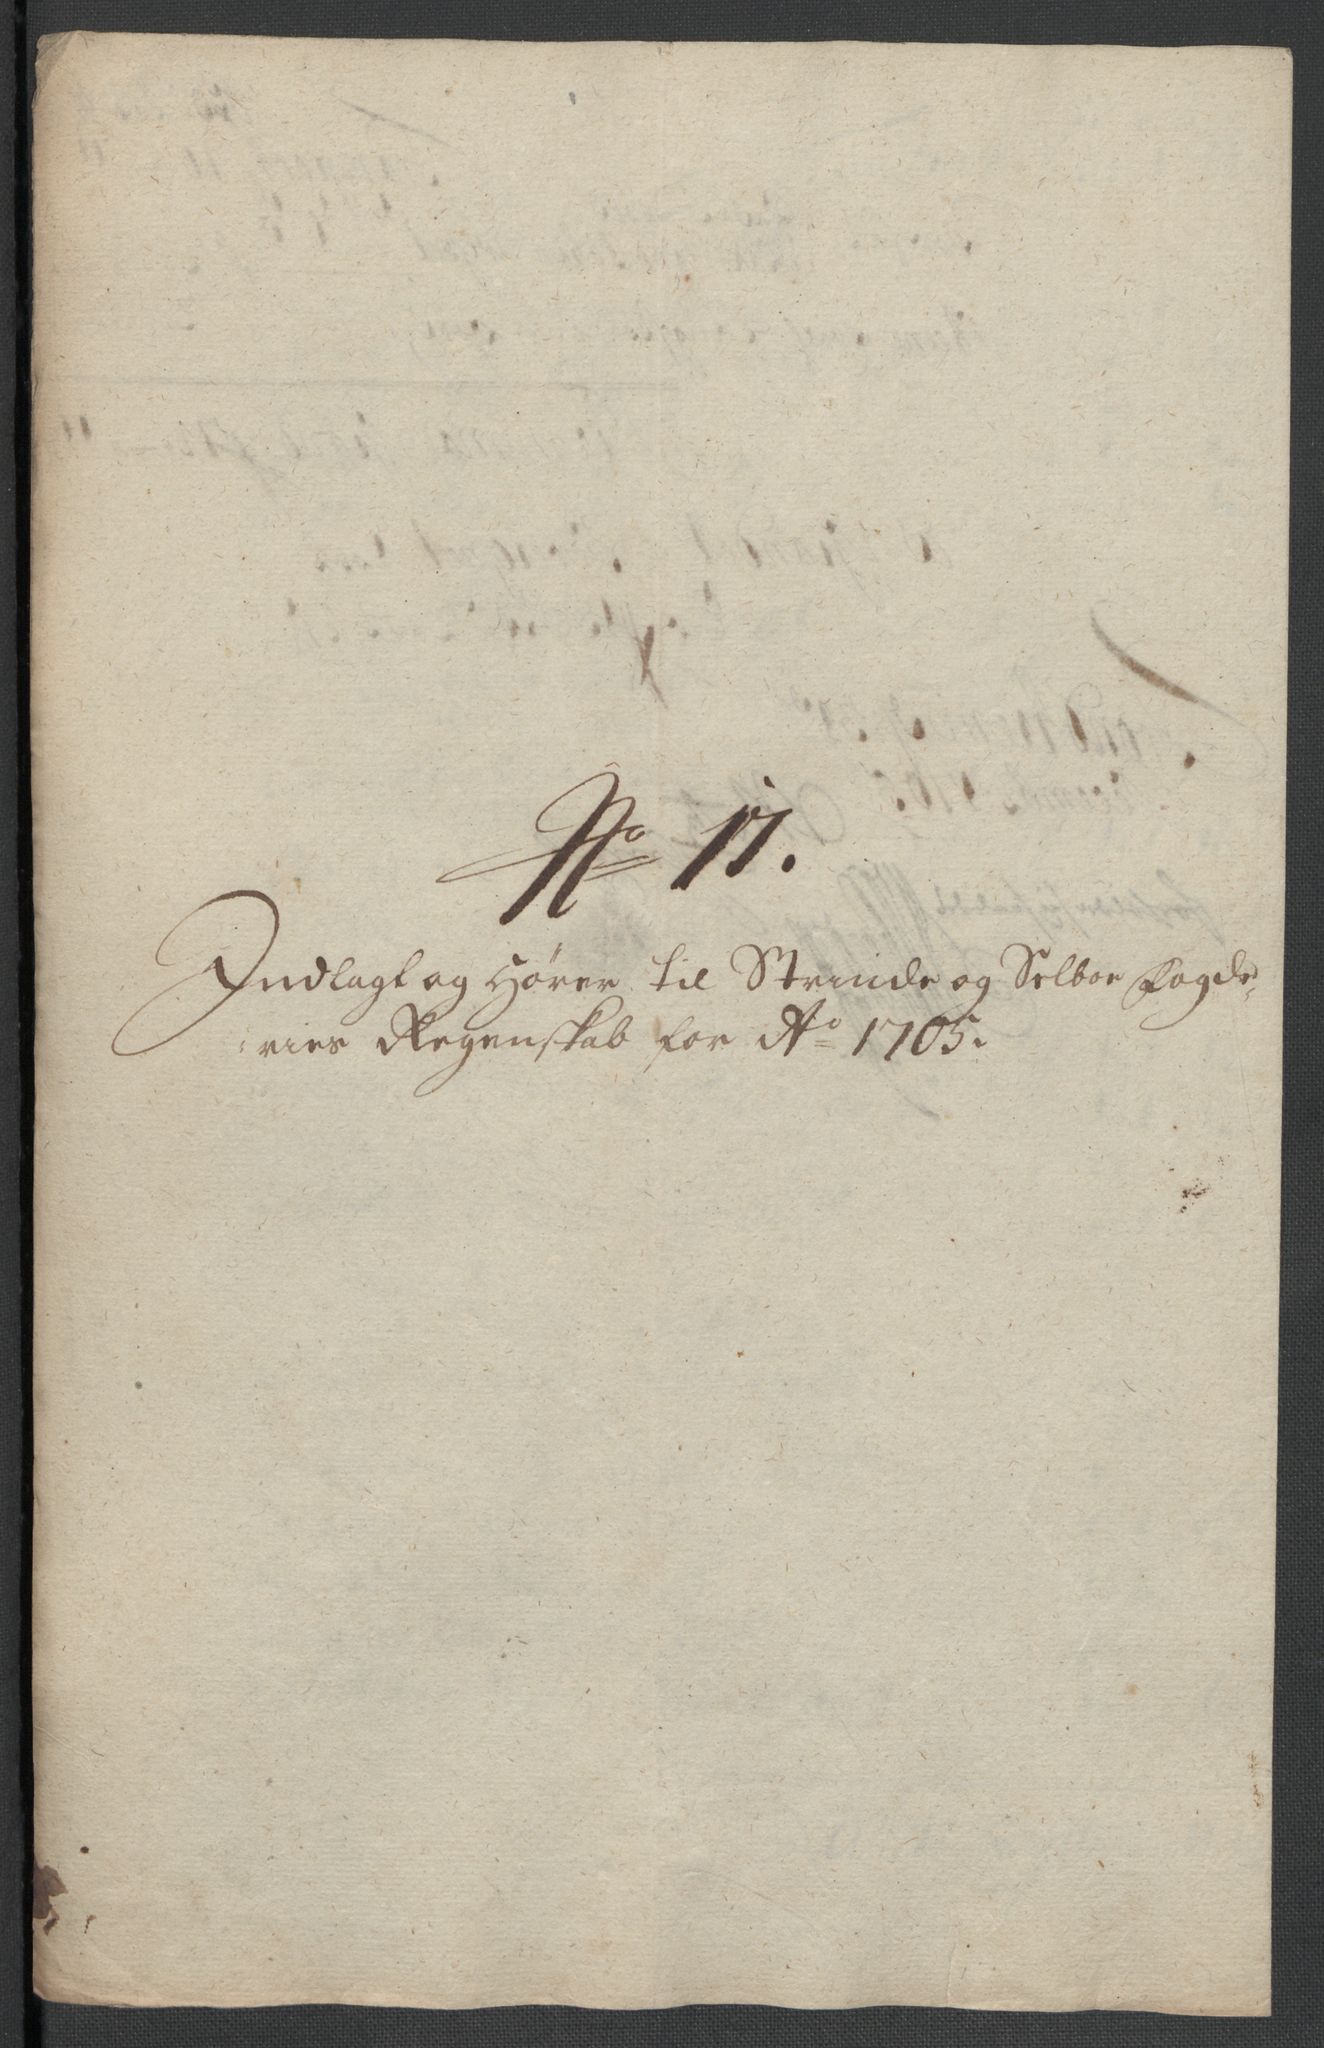 No 17.
Indlagt og Hører til Strinde og Selboe Fogde-
ries Regenskab for Ao 1705.